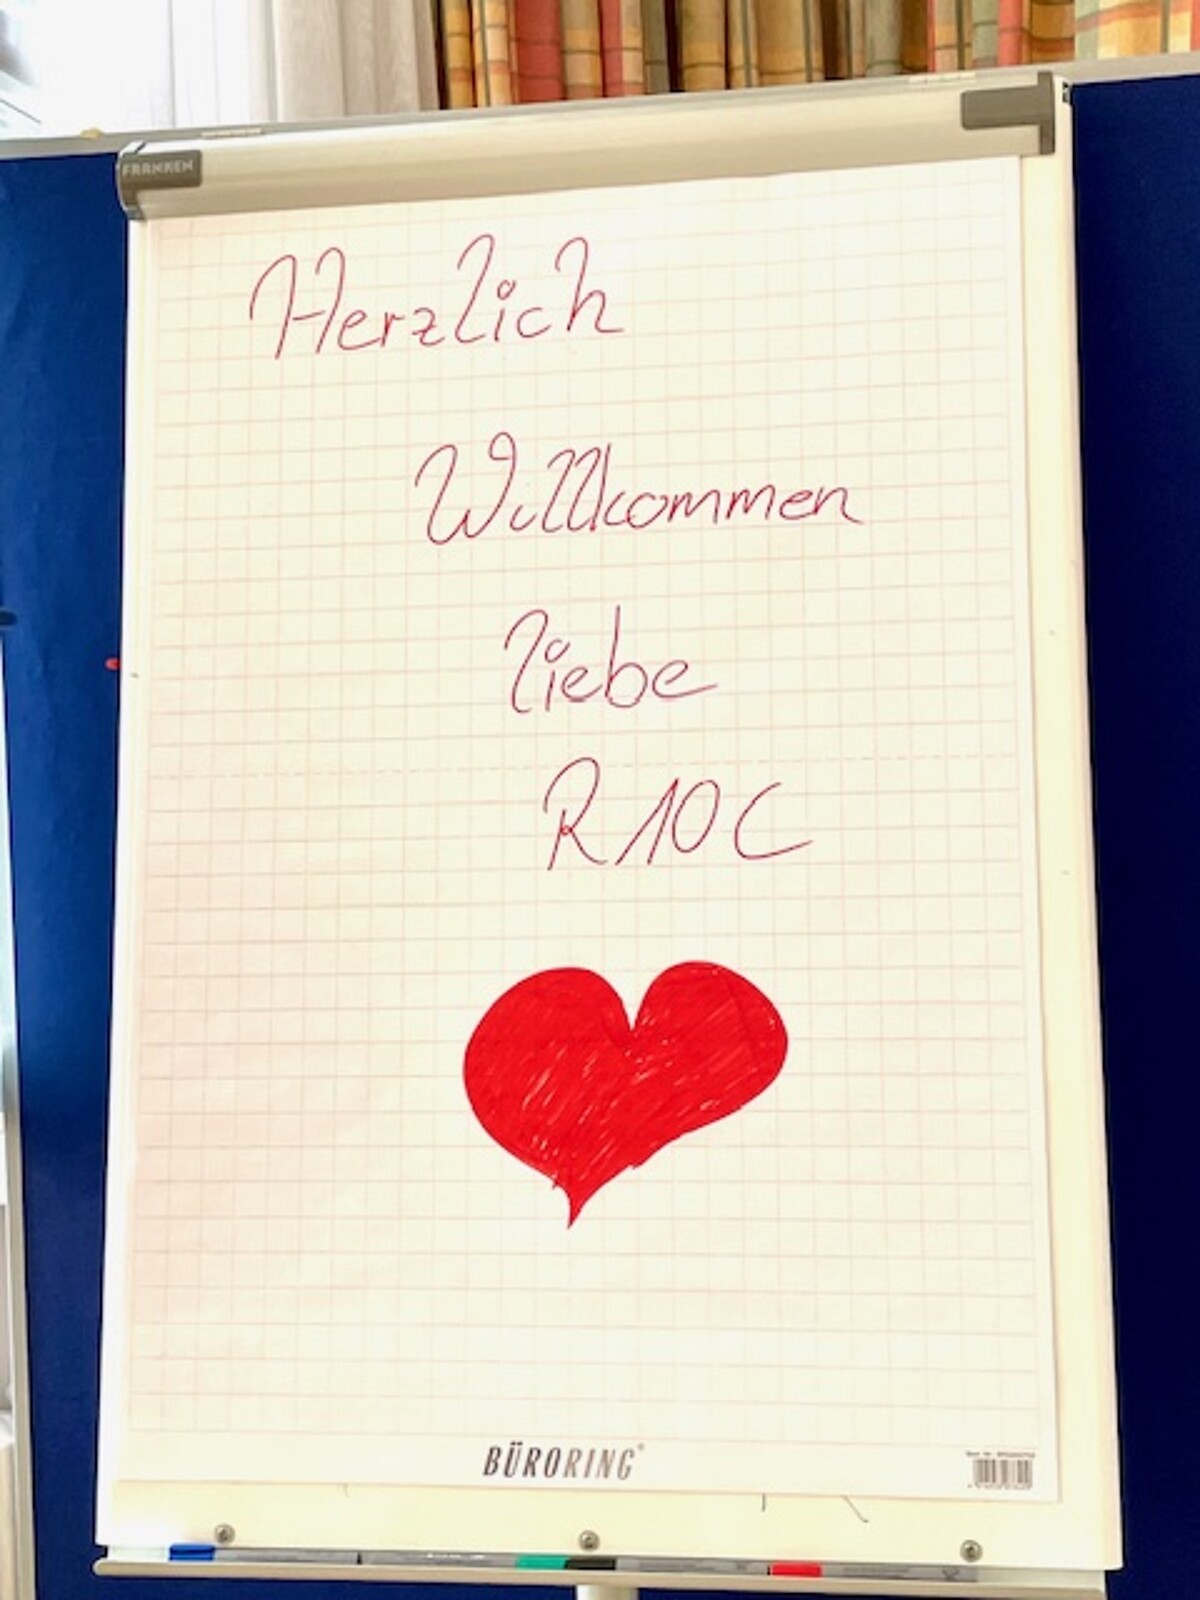 FRANKEN
Herzlich
Willkommen
liebe
R10C
BÜRORING®